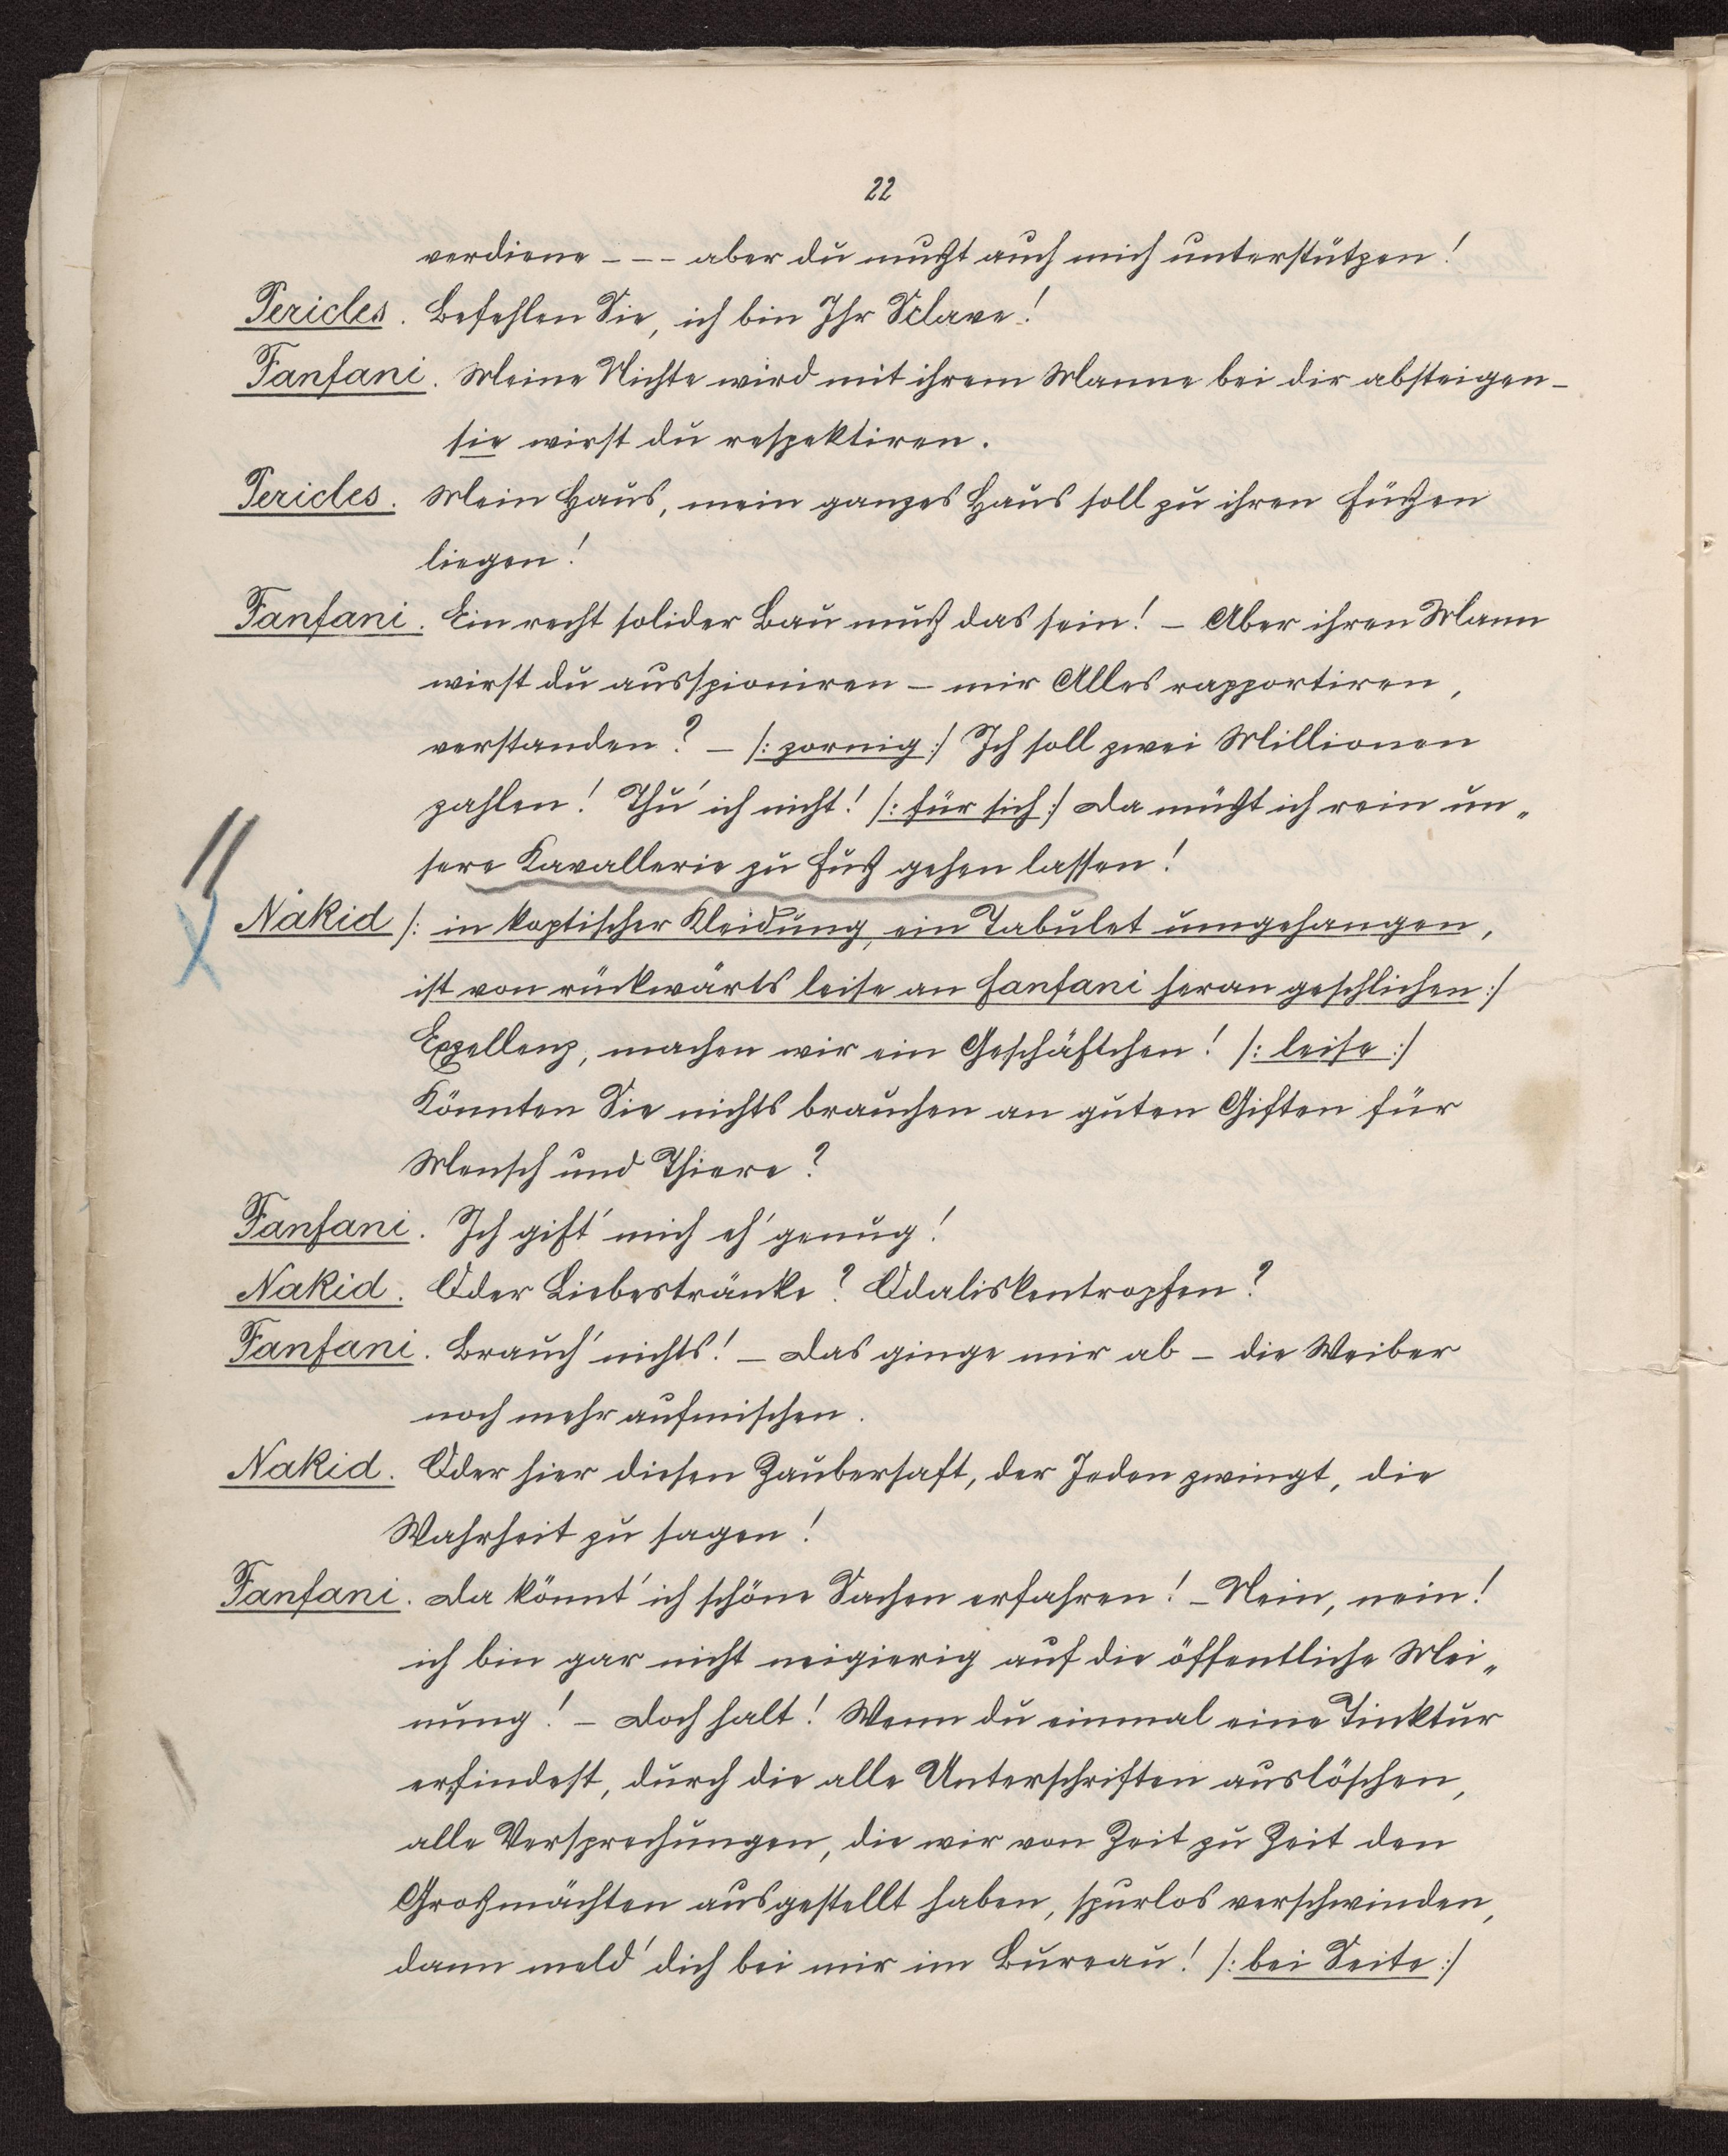 22
verdiene - - - aber du mußt auch mich unterstützen!
Pericles. Befehlen Sie, ich bin Ihr Sclave!
Fanfani. Meine Nichte wird mit ihrem Manne bei dir absteigen –
sie wirst du respektiren.
Pericles. Mein Haus, mein ganzes Haus soll zu ihren Füßen
liegen!
Fanfani. Ein recht solider Bau muß das sein! – Aber ihren Mann
wirst du ausspioniren – mir Alles rapportiren,
verstanden? – /: zornig :/ Ich soll zwei Millionen
zahlen! Thu' ich nicht! /: für sich :/ Da müßt ich rein un„
sere Kavallerie zu Fuß gehen lassen!
Nakid /: in koptischer Kleidung, ein Tabulet umgehangen,
ist von rückwärts leise an Fanfani heran geschlichen :/
Exzellenz, machen wir ein Geschäftchen! /: leise :/
Könnten Sie nichts brauchen an guten Giften für
Mensch und Thiere?
Fanfani. Ich gift' mich eh' genug!
Nakid. Oder Liebestränke? Odaliskentropfen?
Fanfani. Brauch' nichts! – Das ginge mir ab – die Weiber
noch mehr aufmischen.
Nakid. Oder hier diesen Zaubersaft, der Jeden zwingt, die
Wahrheit zu sagen!
Fanfani. Da könnt' ich schöne Sachen erfahren! – Nein, nein!
ich bin gar nicht neigierig auf die öffentliche Mei„
nung! – Doch halt! Wenn du einmal eine Tinktur
erfindest, durch die alle Unterschriften auslöschen,
alle Versprechungen, die wir von Zeit zu Zeit den
Großmächten ausgestellt haben, spurlos verschwinden,
dann meld' dich bei mir im Bureau! /: bei Seite :/